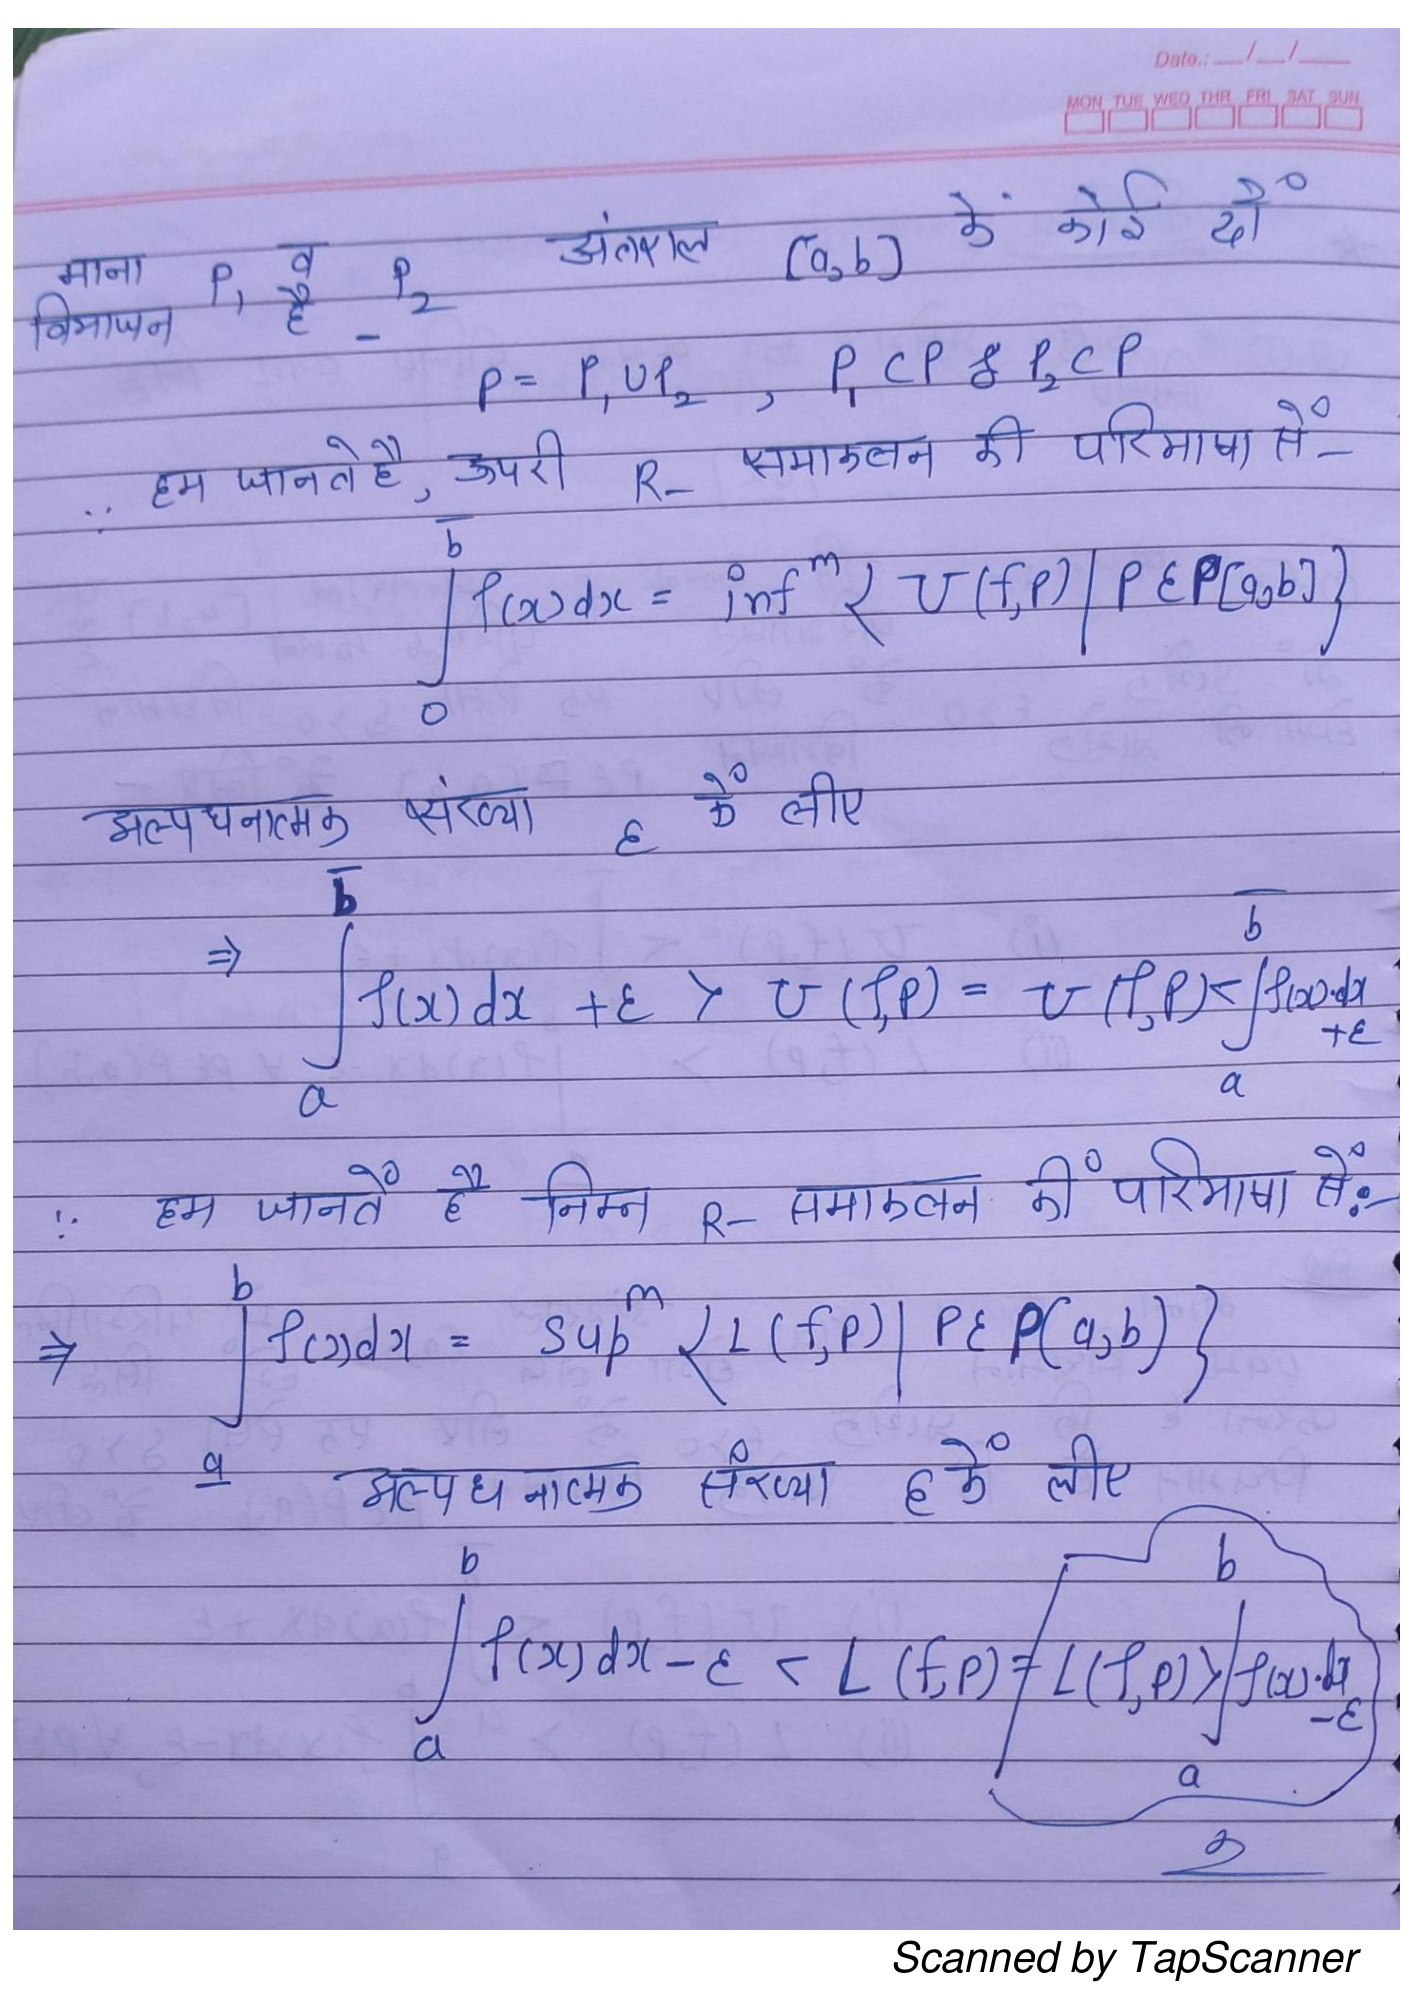 Date.: __/__/___
MON TUE WED THR FRI SAT SUN
माना P₁ व P₂ अंतराल [a,b] के कोई दो
विभाजन है -
P = P₁UP₂ , P₁ ⊂ P & P₂ ⊂ P
∵ हम जानते है, ऊपरी R- समाकलन की परिभाषा से -
∫₀^b̅ f(x) dx = infᵐ { U(f,P) | P ε P[a,b] }
अल्पधनात्मक संख्या ε के लीए
⇒ ∫ₐ^b̅ f(x) dx + ε > U (f,P) = U (f,P) < ∫ₐ^b̅ f(x).dx + ε
∵ हम जानते है निम्न R- समाकलन की परिभाषा से:-
⇒ ∫_a̲^b f(x)dx = Supᵐ { L(f,P) | P ε P(a,b) }
अल्पधनात्मक संख्या ε के लीए
∫ₐ^b f(x) dx - ε < L (f,P) = L(f,P) > ∫ₐ^b f(x).dx - ε
Scanned by TapScanner